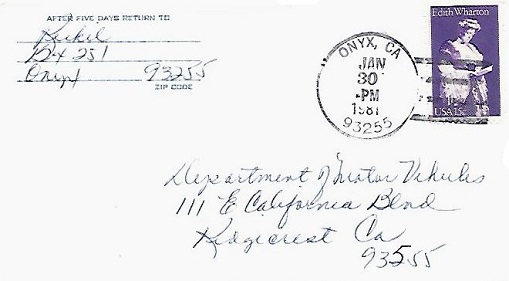 AFTER FIVE DAYS RETURN TO
Kickel
Bx 251
Onyx 93255
ZIP CODE
ONYX, CA
JAN
30
-PM
1981
93255
Edith Wharton
USA 15c
Department of Motor Vehicles
111 E California Blvd
Ridgecrest Ca
93555